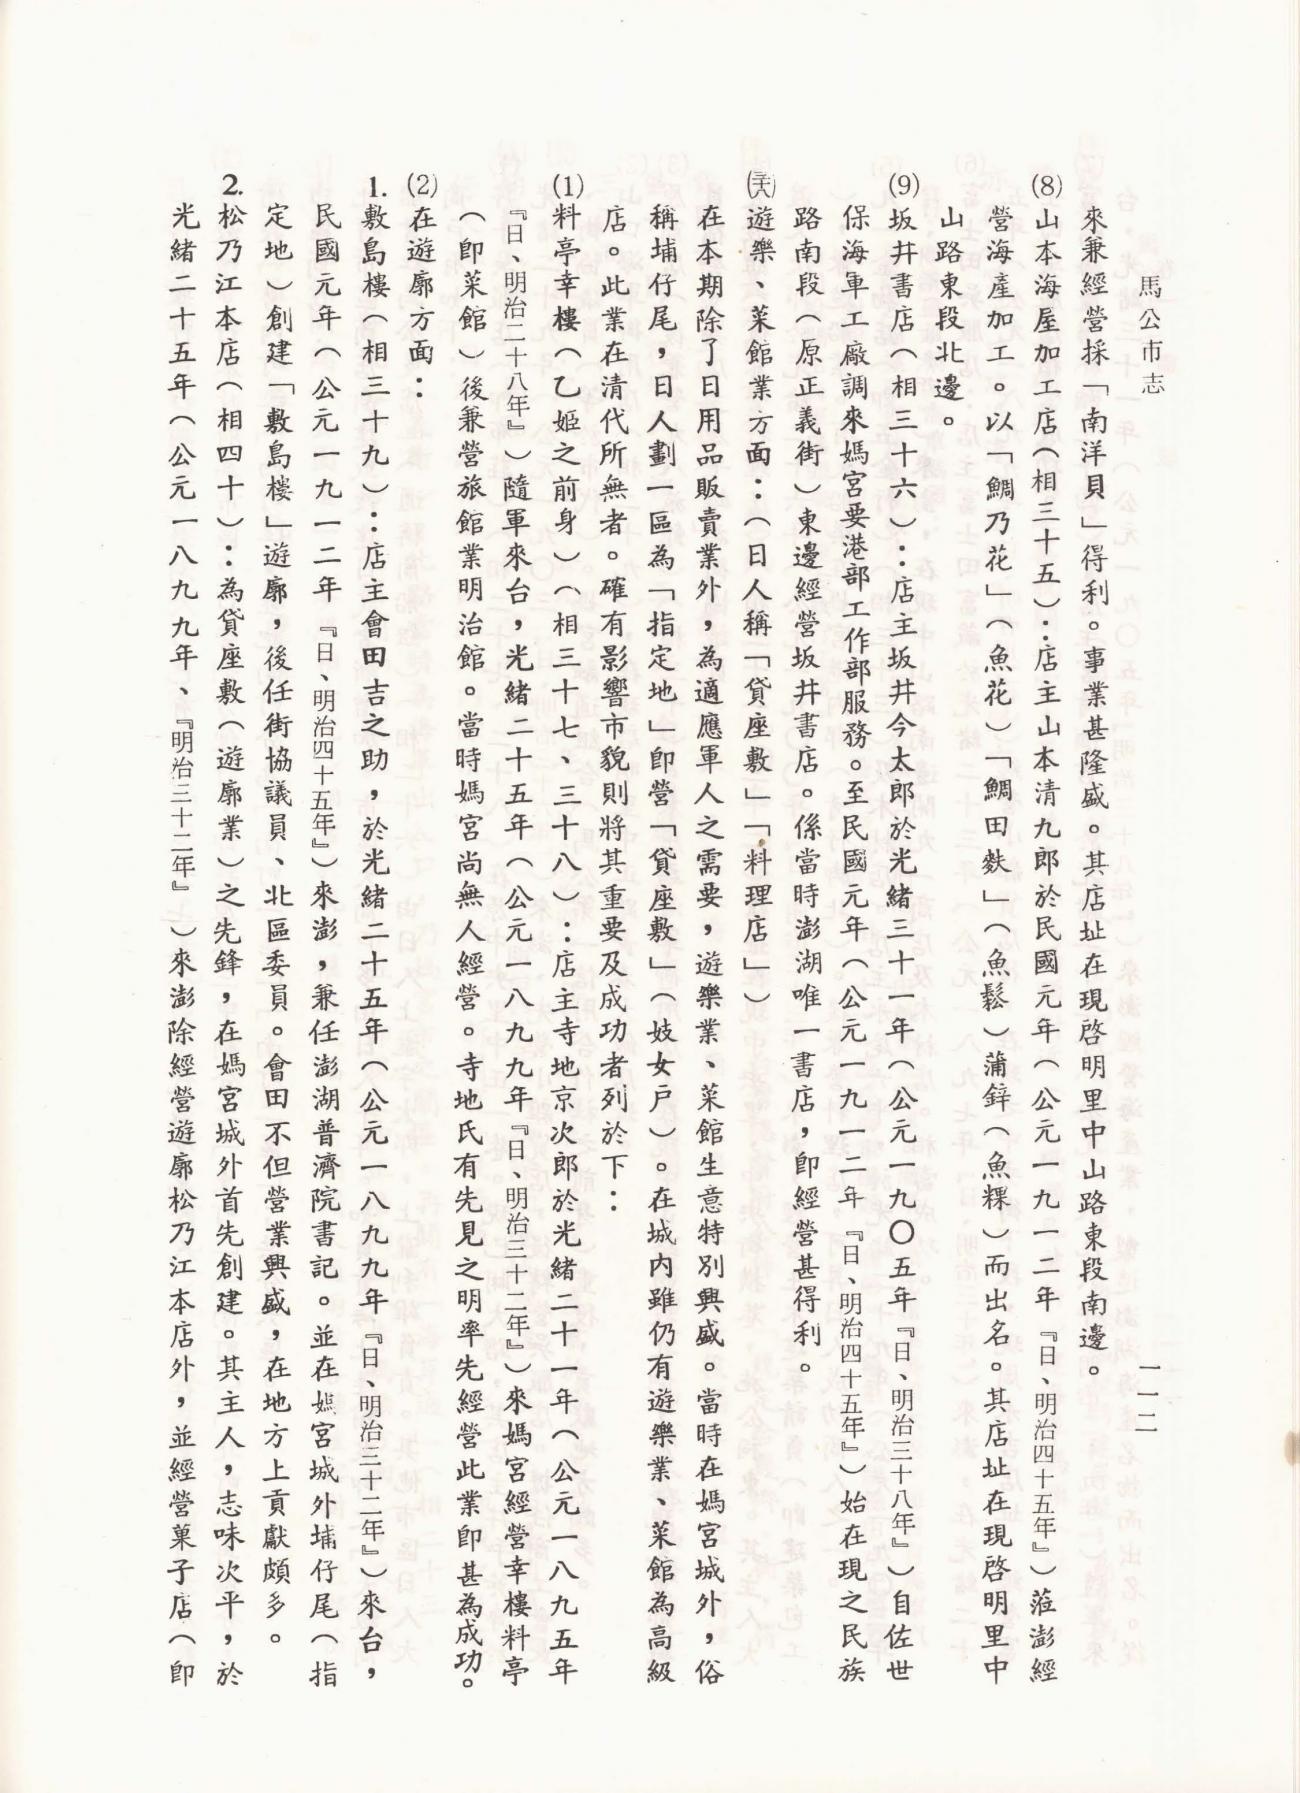 馬公市志
一一二
來兼經營採「南洋貝」得利。事業甚隆盛。其店址在現啓明里中山路東段南邊。
(8)山本海屋加工店(相三十五)：店主山本清九郎於民國元年(公元一九一二年『日、明治四十五年』)蒞澎經
營海產加工。以「鯛乃花」(魚花)「鯛田麩」(魚鬆)蒲鉾(魚粿)而出名。其店址在現啓明里中
山路東段北邊。
(9)坂井書店(相三十六)：店主坂井今太郎於光緒三十一年(公元一九〇五年『日、明治三十八年』)自佐世
保海軍工廠調來媽宮要港部工作部服務。至民國元年(公元一九一二年『日、明治四十五年』)始在現之民族
路南段(原正義街)東邊經營坂井書店。係當時澎湖唯一書店，即經營甚得利。
㈥遊樂、菜館業方面：(日人稱「貸座敷」「料理店」)
在本期除了日用品販賣業外，為適應軍人之需要，遊樂業、菜館生意特別興盛。當時在媽宮城外，俗
稱埔仔尾，日人劃一區為「指定地」即營「貸座敷」(妓女戶)。在城內雖仍有遊樂業、菜館為高級
店。此業在清代所無者。確有影響市貌則將其重要及成功者列於下：
(1)料亭幸樓(乙姬之前身)(相三十七、三十八)：店主寺地京次郎於光緒二十一年(公元一八九五年
『日、明治二十八年』)隨軍來台，光緒二十五年(公元一八九九年『日、明治三十二年』)來媽宮經營幸樓料亭
(即菜館)後兼營旅館業明治館。當時媽宮尚無人經營。寺地氏有先見之明率先經營此業即甚為成功。
(2)在遊廓方面：
1.敷島樓(相三十九)：店主會田吉之助，於光緒二十五年(公元一八九九年『日、明治三十二年』)來台，
民國元年(公元一九一二年『日、明治四十五年』)來澎，兼任澎湖普濟院書記。並在媽宮城外埔仔尾(指
定地)創建「敷島樓」遊廓，後任街協議員、北區委員。會田不但營業興盛，在地方上貢獻頗多。
2.松乃江本店(相四十)：為貸座敷(遊廓業)之先鋒，在媽宮城外首先創建。其主人，志味次平，於
光緒二十五年(公元一八九九年、『明治三十二年』)來澎除經營遊廓松乃江本店外，並經營菓子店(即